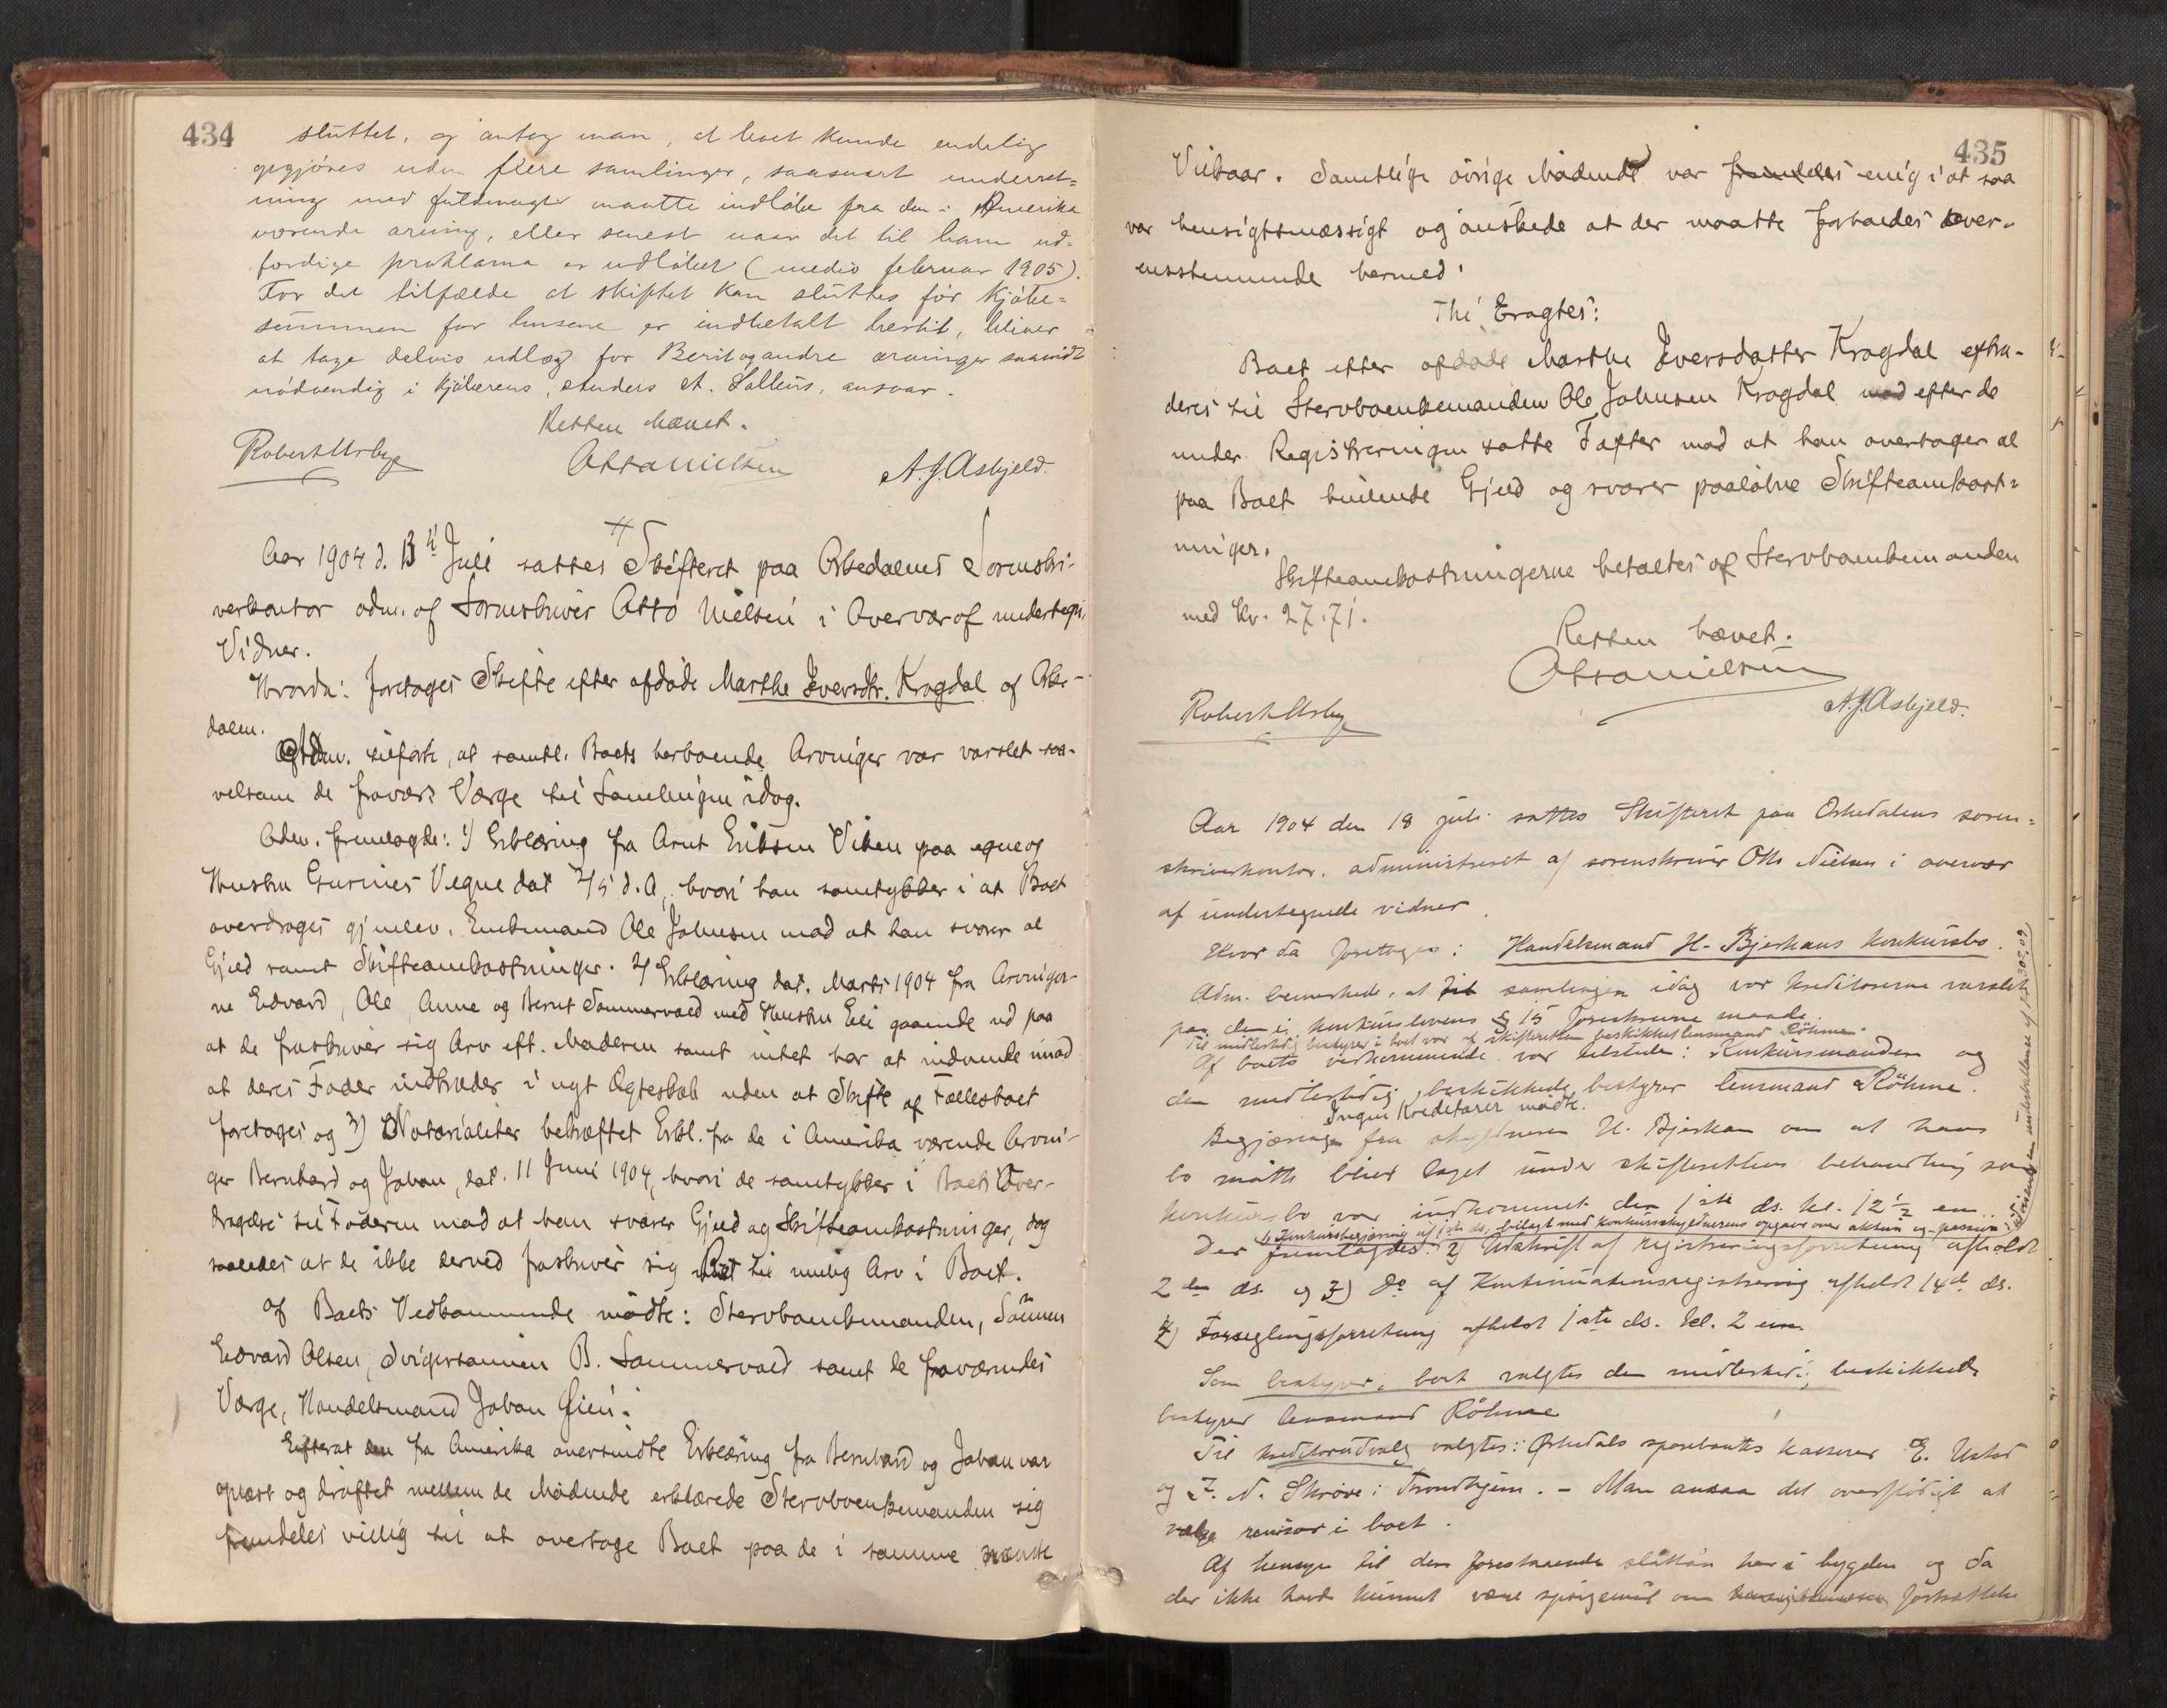 434
sluttet, og antog man, at boet kunde endelig
opgjöres uden flere samlinger, saasnart underret=
ning med fuldmagt maatte indlöbe fra den i Amerika
værende arving, eller senest naar det til ham ud=
færdige proklama er udlöbet (medio februar 1905).
For det tilfælde at skiftet kan sluttes för kjöbe=
summen for husene er indbetalt hertil, bliver
at tage delvis udlæg for Berit og andre arvinger saavidt
nödvendig i kjöberens, Anders A. Solliens, ansvar.
Retten hævet.
Robert Urbye Otto Nielsen A. J. Asbjeld.
Aar 1904 d. 13de Juli sattes Skifteret paa Orkedalens Sorenskri-
verkontor adm. af Sorenskriver Otto Nielsen i Overvær af undertegn.
Vidner.
Hvorda: foretoges Skifte efter afdöde Marthe Iversdtr. Krogdal af Orke-
dalen.
Adm. tilförte, at samtl. Boets herboende Arvinger var varslet saa-
velsom de fravær. Værge til Samlingen idag.
Adm. fremlagde: 1) Erklæring fra Arnt Eriksen Viken paa egne og
Hustru Gurines Vegne dat 2/5 d. A., hvori han samtykker i at Boet
overdrages gjenlev. Enkemand Ole Johnsen mod at han svarer al
Gjeld samt Skifteomkostninger. 2) Erklæring dat. Marts 1904 fra Arvinger-
ne Edvard, Ole, Anne og Bernt Sommervold med Hustru Eli gaaende ud paa
at de fraskriver sig Arv eft. Moderen samt intet har at indvende imod
at deres Fader indtræder i nyt Ægteskab uden at Skifte af Fællesboet
foretages og 3) Notarialiter bekræftet Erkl. fra de i Amerika værende Arvin-
ger Bernhard og Johan, dat. 11 Juni 1904, hvori de samtykker i Boets Over-
dragelse til Faderen mod at han svarer Gjeld og Skifteomkostninger, dog
saaledes at de ikke derved fraskriver sig Ret til mulig Arv i Boet.
Af Boets Vedkommende mödte: Stervboenkemanden, Sönnen
Edvard Olsen, Svigersönnen B. Sommervold samt de fraværendes
Værge, Handelsmand Johan Öien.
Efterat den fra Amerika oversendte Erklæring fra Bernhard og Johan var
oplæst og dröftet mellem de Mödende erklærede Stervboenkemanden sig
fremdeles villig til at overtage Boet paa de i samme nævnte
435
Vilkaar. Samtlige övrige Mödende var fremdeles enig i at saa
var hensigtsmæssigt og önskede at der maatte forholdes over-
ensstemmende hermed.
Thi Eragtes:
Boet efter afdöde Marthe Iversdatter Krogdal extra-
deres til Stervboenkemanden Ole Johnsen Krogdal mod efter de
under Registreringen satte Taxter mod at han overtager al
paa Boet hvilende Gjeld og svarer paalöbne Skifteomkost=
ninger.
Skifteomkostningerne betaltes af Stervboenkemanden
med Kr. 27.71.
Retten hævet.
Otto Nielsen
Robert Urbye A. J. Asbjeld.
Aar 1904 den 18 juli sattes Skifteret paa Orkedalens soren=
skriverkontor, administreret af sorenskriver Otto Nielsen i overvær
af undertegnede vidner.
Hvor da foretoges: Handelsmand H. Bjerkans konkursbo.
Adm. bemerkede, at til samlingen idag var kreditorerne varslet
paa den i konkurslovens § 15 foreskrevne maade.
Til midlertidig bestyrer i boet var af skifteretten beskikket lensmand Röhme.
Af boets vedkommende var tilstede: Konkursmanden og
den midlertidig beskikkede bestyrer lensmand Röhme.
Ingen Kreditorer mödte.
Begjæringen fra skyldneren H. Bjerkan om at hans
bo maatte blive taget under skifterettens behandling som
konkursbo var indkommet den 1ste ds. kl. 12½ em.
1) Konkursbegjæring af 1ste ds. bilagt med konkursskyldnerens opgave over aktiva og passiva
Der fremlagdes: 2) Udskrift af registreringsforretning afholdt
2den ds. og 3) do af Kontinuationsregistrering afholdt 14de ds.
4) Forseglingsforretning afholdt 1ste ds. kl. 2 em.
Som bestyrer i boet valgtes den midlertidig beskikkede
bestyrer lensmand Röhme
Til kreditorudvalg valgtes: Orkedals sparebanks kasserer E. Ustad
og F. N. Skröve i Trondhjem. - Man ansaa det overflödigt at
vælge revisor i boet.
Af hensyn til den forestaaende slaatton her i bygden og da
der ikke havde kunnet være spörgsmaal om fortsættelse